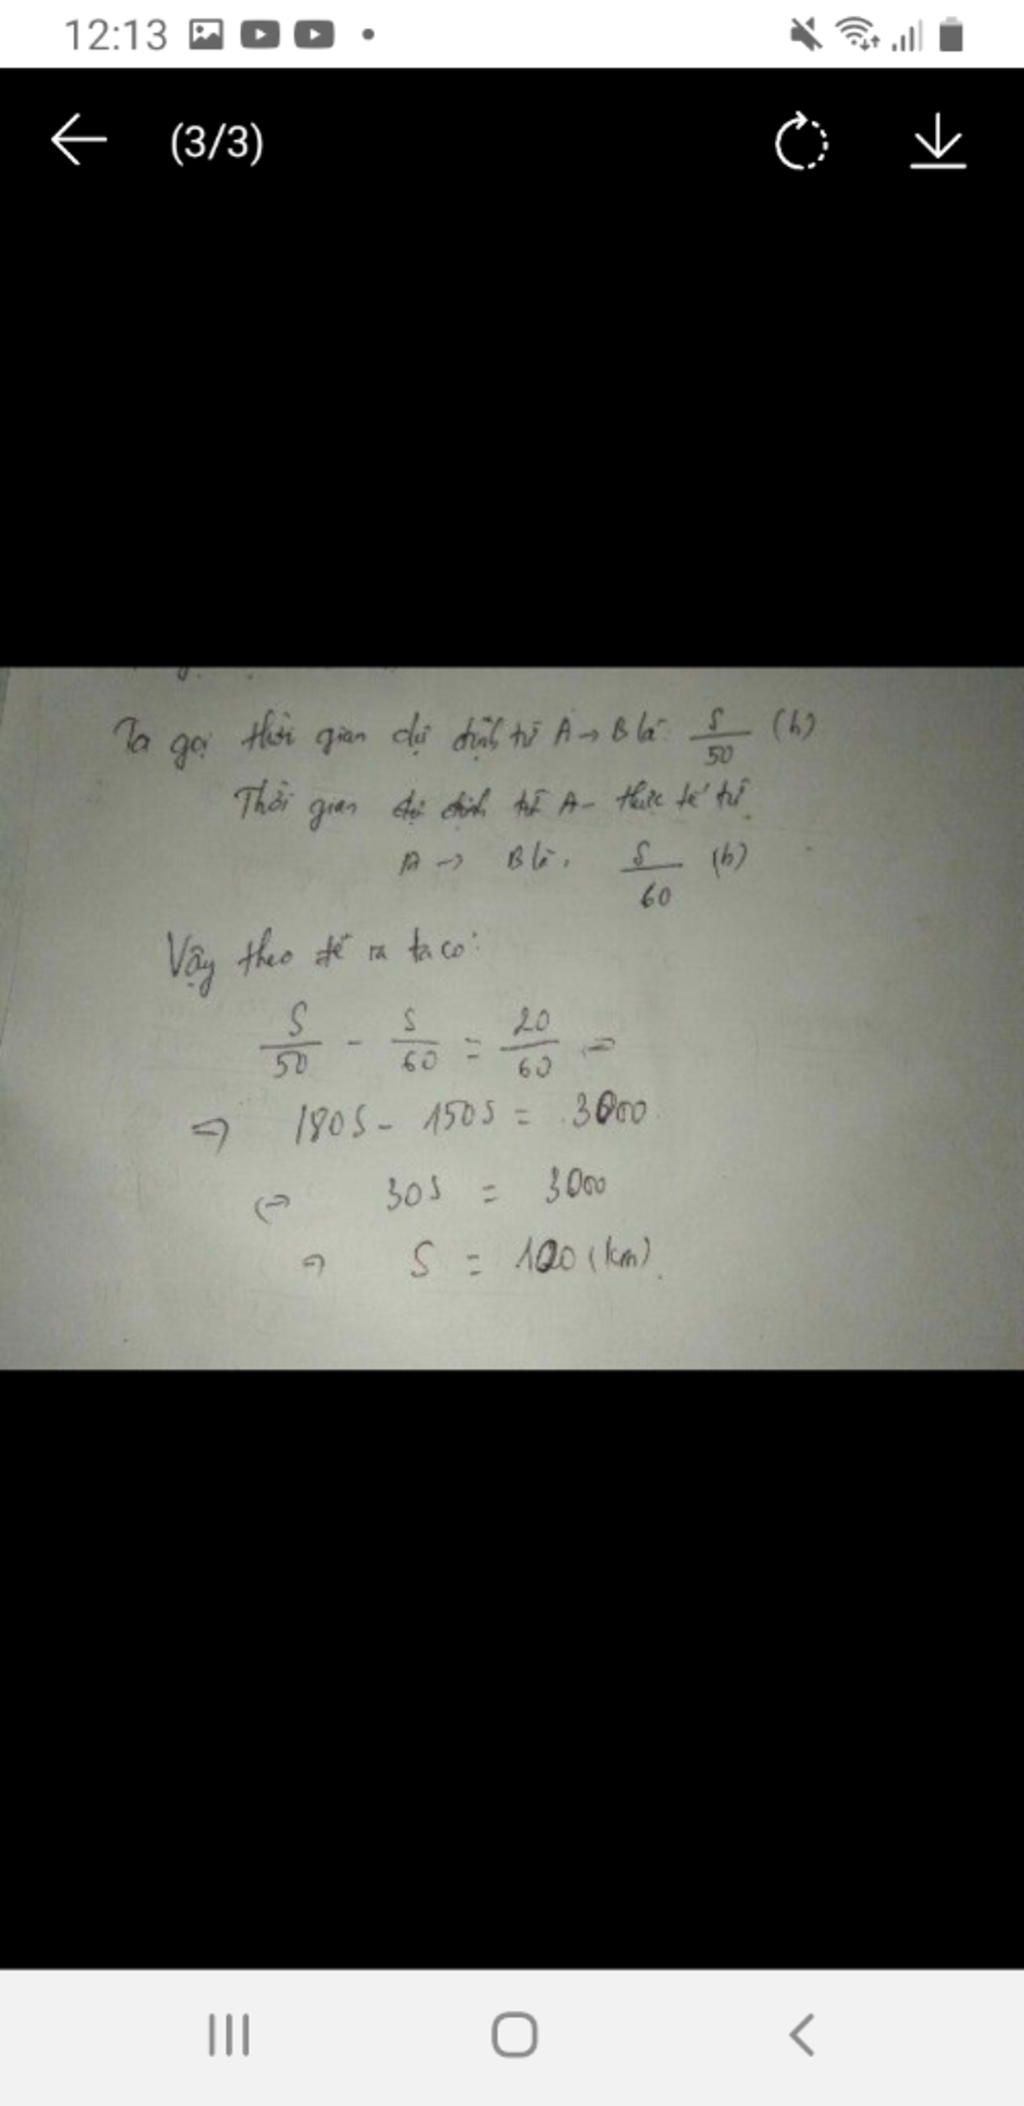 12:13
(3/3)
Ta gọi thời gian dự định từ A → B là: S/50 (h)
Thời gian dự định từ A - thực tế từ
A → B là. S/60 (h)
Vậy theo đề ra ta có:
S/50 - S/60 = 20/60 =>
=> 180S - 150S = 3000
<=> 30S = 3000
=> S = 100 (km).